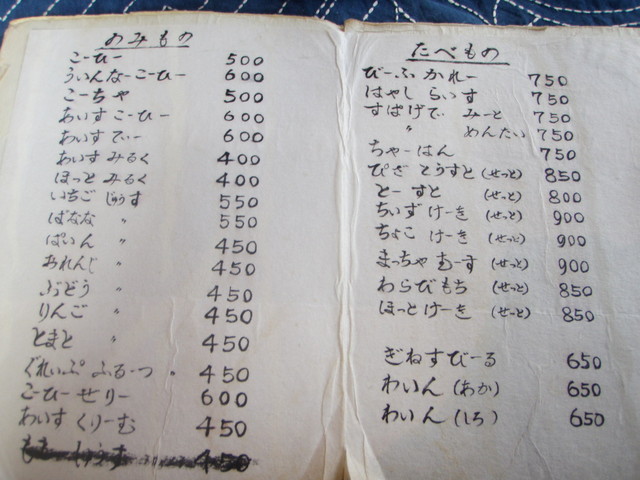 のみもの
こーひー 500
ういんなーこーひー 600
こーちゃ 500
あいすこーひー 600
あいすてぃー 600
あいすみるく 400
ほっとみるく 400
いちごじゅうす 550
ばなな 〃 550
ぱいん 〃 450
おれんじ 〃 450
ぶどう 〃 450
りんご 〃 450
とまと 〃 450
ぐれいぷふるーつ 〃 450
こーひーぜりー 600
あいすくりーむ 450
450
たべもの
びーふかれー 750
はやしらいす 750
すぱげてぃ みーと 750
〃 めんたい 750
ちゃーはん 750
ぴざとうすと (せっと) 850
とーすと (せっと) 800
ちいずけーき (せっと) 900
ちょこけーき (せっと) 900
まっちゃむーす (せっと) 900
わらびもち (せっと) 850
ほっとけーき (せっと) 850
ぎねすびーる 650
わいん (あか) 650
わいん (しろ) 650